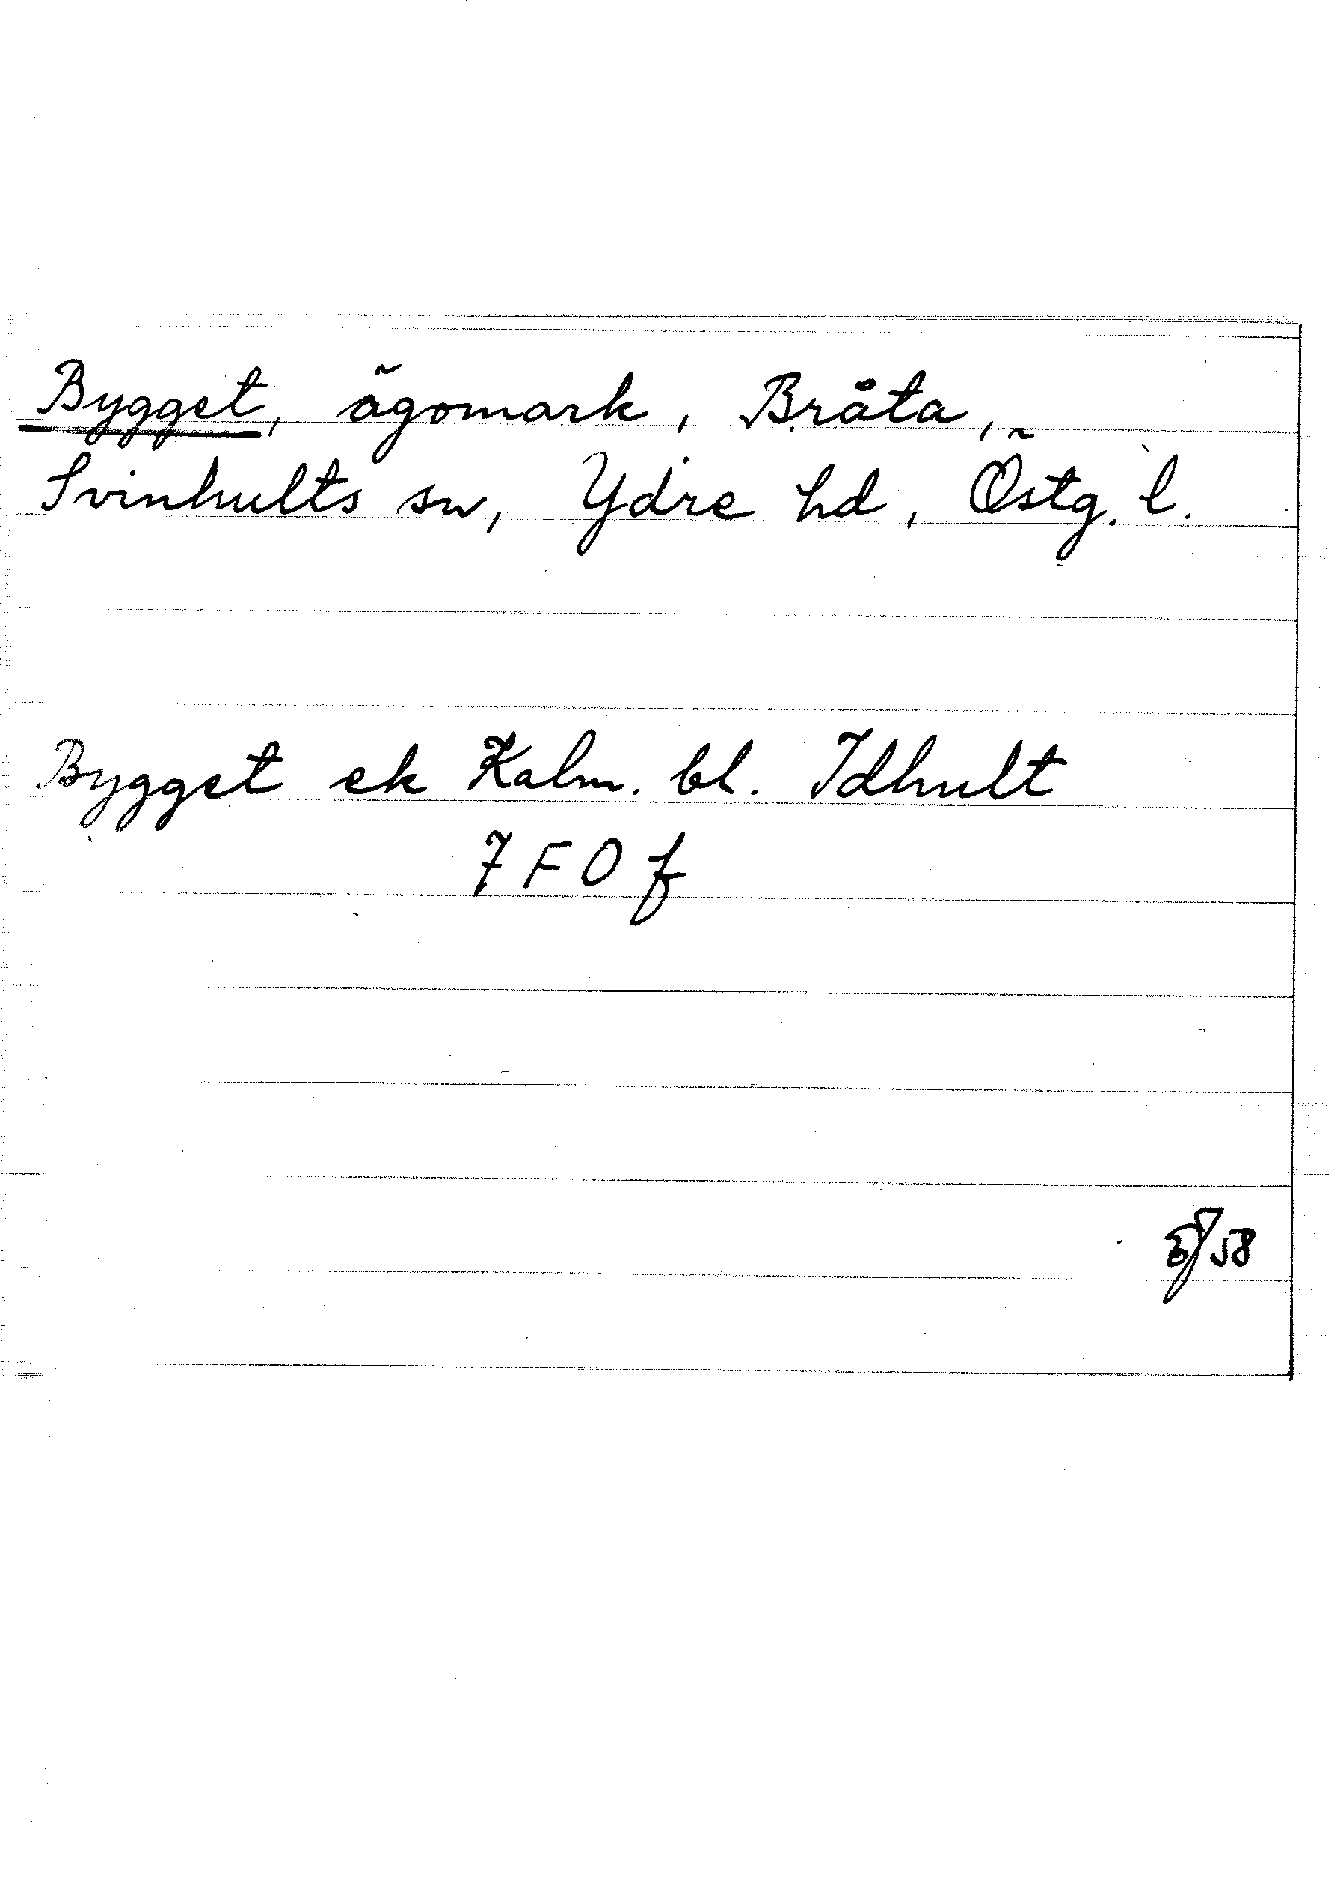 Bygget, ägomark, Bråta,
Svinhults sn, Ydre hd, Östg. l.
Bygget ek Kalm. bl. Idhult
7 F 0 f
58